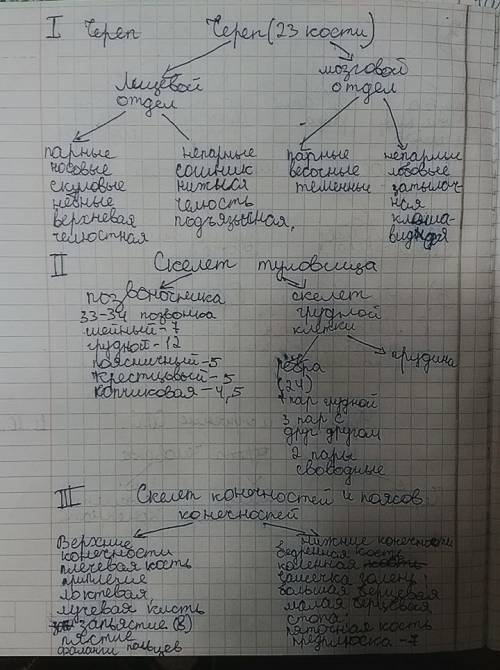 I Череп Череп (23 кости)
лицевой
отдел
мозговой
отдел
парные
носовые
скуловые
небные
верхневая
челюстная
непарные
сошник
нижняя
челюсть
подъязычная,
парные
височные
теменные
непарные
лобовые
затылоч-
ная
клиша-
видная
II Скелет туловища
позвоночника
33-34 позвонка
шейный - 7
грудной - 12
поясничный - 5
крестцовый - 5
копчиковая - 4,5
скелет
грудной
клетки
рёбра
(24)
7 пар грудной
3 пар с
друг другом
2 пары
свободные
грудина
III Скелет конечностей и поясов
конечностей
Верхние
конечности
плечевая кость
локтевая,
лучевая кисть
запястие (8)
пястие
фаланги пальцев
нижние конечности
бедренная кость
коленная
большая берцевая
малая берцевая
стопа:
пяточная кость
предплюска - 7